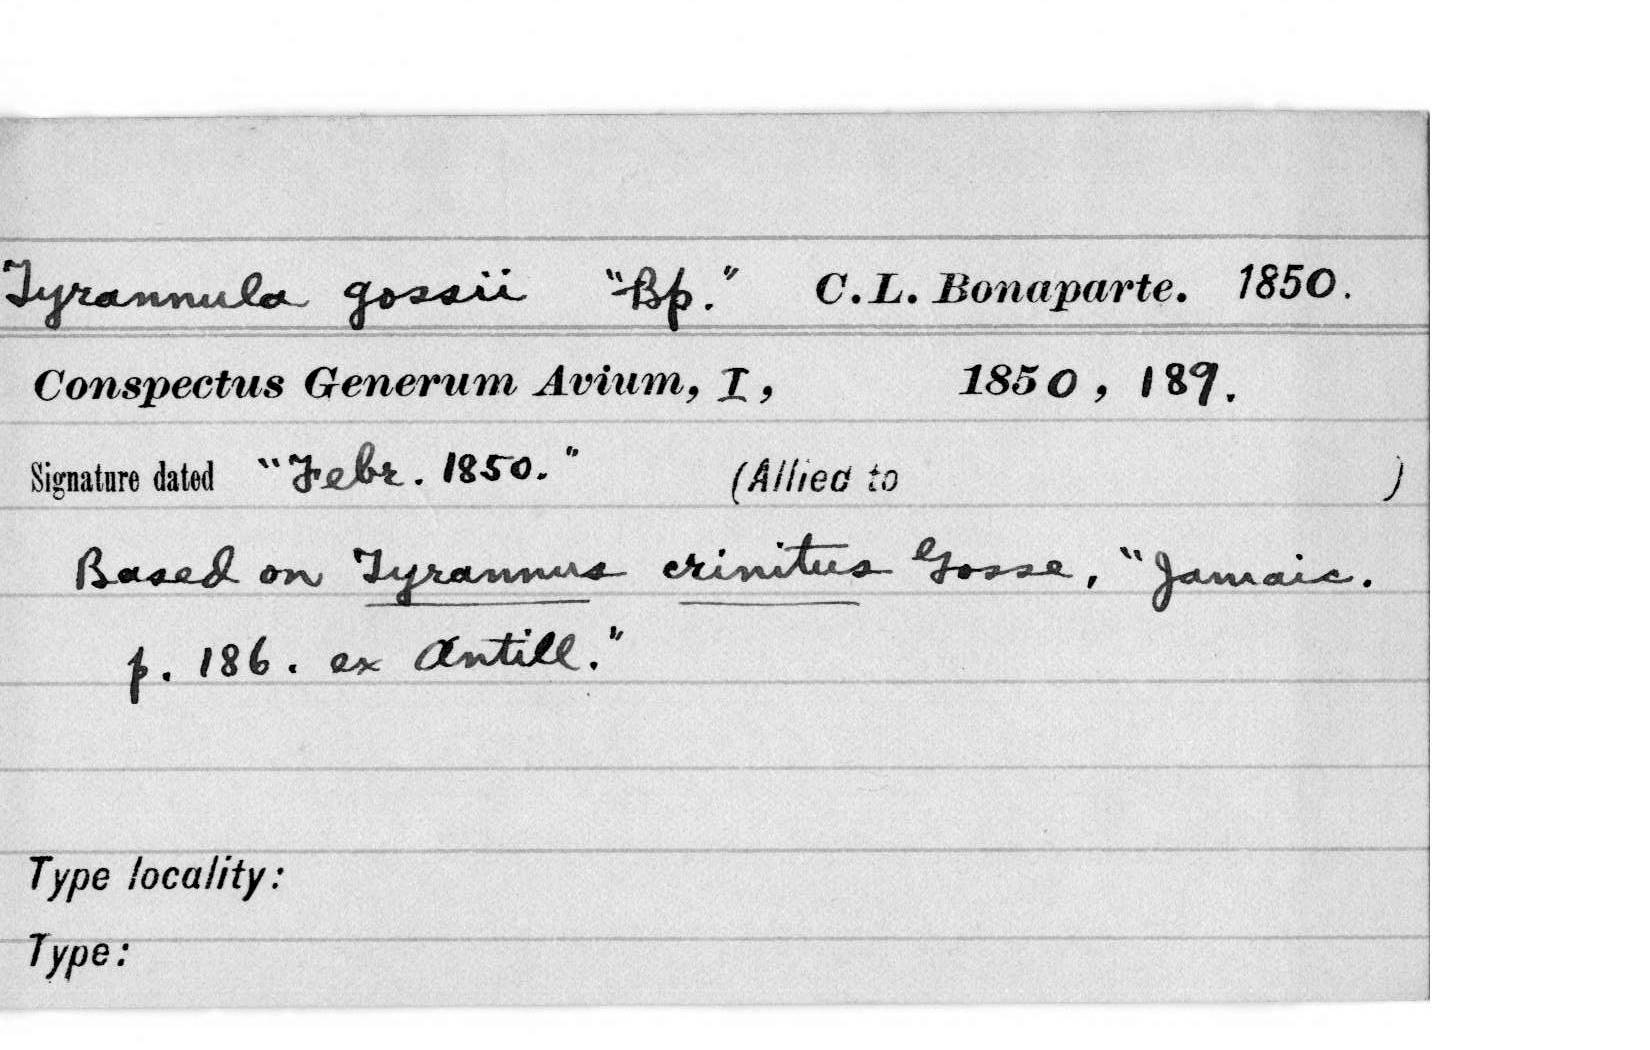 Tyrannula gossii "Bp." C.L. Bonaparte. 1850.
Conspectus Generum Avium, I, 1850, 189.
Signature dated "Febr. 1850." (Allied to )
Based on Tyrannus crinitus Gosse, "Jamaic.
p. 186. ex Antill."
Type locality:
Type: